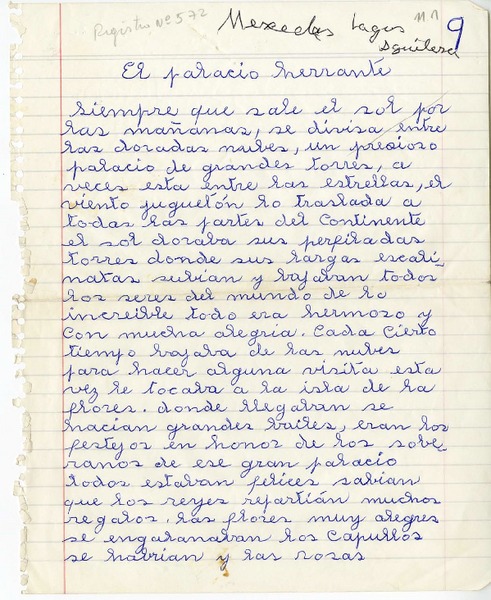 Registro Nº 572
Mercedes Lagos
Aguilera
9
El palacio herrante
Siempre que sale el sol por
las mañanas, se divisa entre
las doradas nubes, un presioso
palacio de grandes torres, a
veces esta entre las estrellas, el
viento juguetón lo traslada a
todas las partes del Continente
el sol doraba sus perfiladas
torres donde sus largas escali-
natas subian y bajaban todos
los seres del mundo de lo
increible todo era hermoso y
con mucha alegria. Cada Cierto
tiempo bajaba de las nubes
para hacer alguna visita esta
vez le tocaba a la isla de la
flores. donde llegaban se
hacian grandes bailes, eran los
festejos en honor de los sobe-
ranos de ese gran palacio
todos estaban felices sabian
que los reyes repartián muchos
regalos. las flores muy alegres
se engalanaban los Capullos
se habrian y las rosas